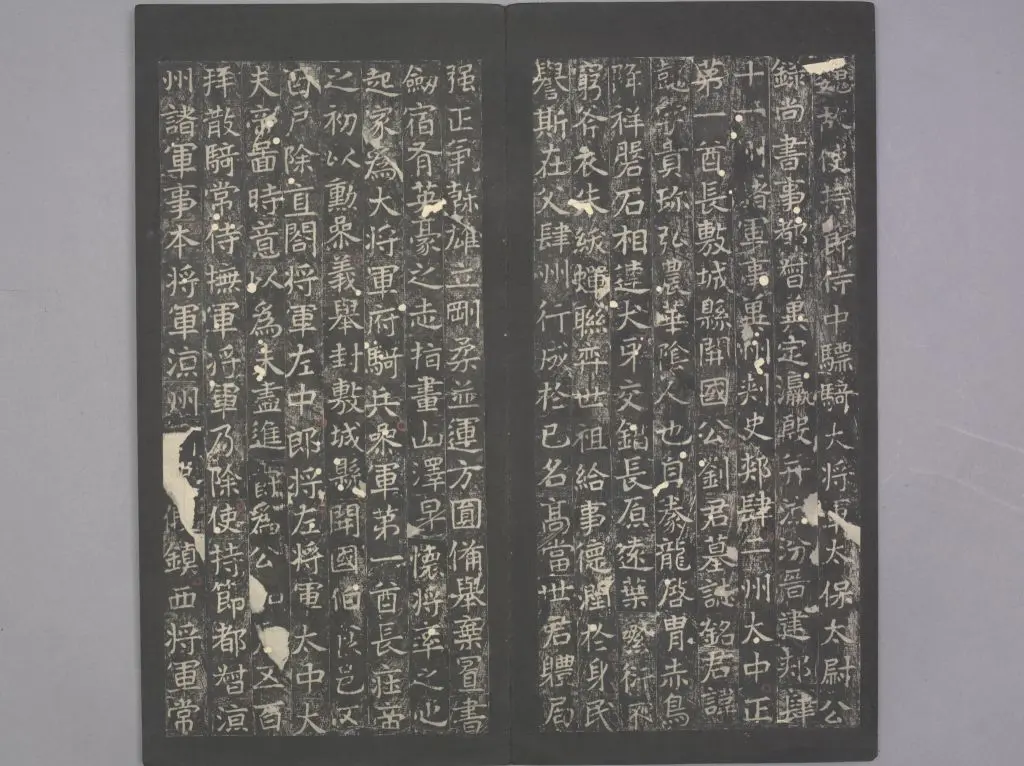 魏故使持節侍中驃騎大將軍太保太尉公
錄尚書事都督冀定瀛殷并涼汾晉建郟肆
十一州諸軍事冀州刺史郟肆二州大中正
第一酋長敷城縣開國公劉君墓誌銘君諱
懿字貴珍弘農華陰人也自豢龍啓胄赤烏
降祥磐石相連犬牙交錯長原遠葉繁衍不
窮斧衣朱紱蟬聯弈世祖給事德潤於身民
譽斯在父肆州行成於已名高當世君體局
强正爭幹雄立剛柔並運方圓俻舉棄置書
劔宿有英豪之志指畫山澤早懷將率之心
起家為大將軍府騎兵參軍第一酋長莊帝
之初以勳參義舉封敷城縣開國伯食邑五
百戶除直閤將軍左中郎將左將軍太中大
夫帝啚時意以為未盡進爵為公 又西
拜散騎常侍撫軍將軍乃除使持節都督涼
州諸軍事本將軍涼州 假鎮西將軍常